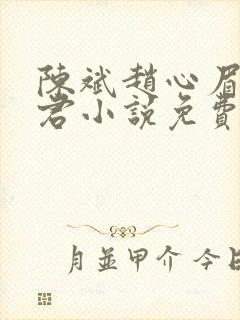 陳斌趙心眉
君小説免費
月並甲介 今日